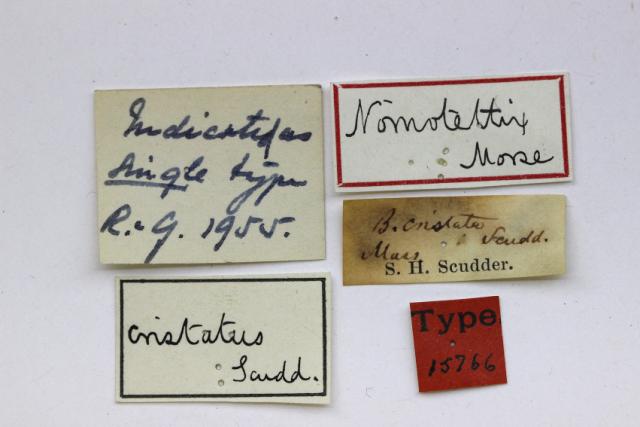 Indicated as
single type
R. & G. 1955.
Nomotettix
Morse
B. cristata
Scudd.
Mass
S. H. Scudder.
cristatus
Scudd.
Type
15766